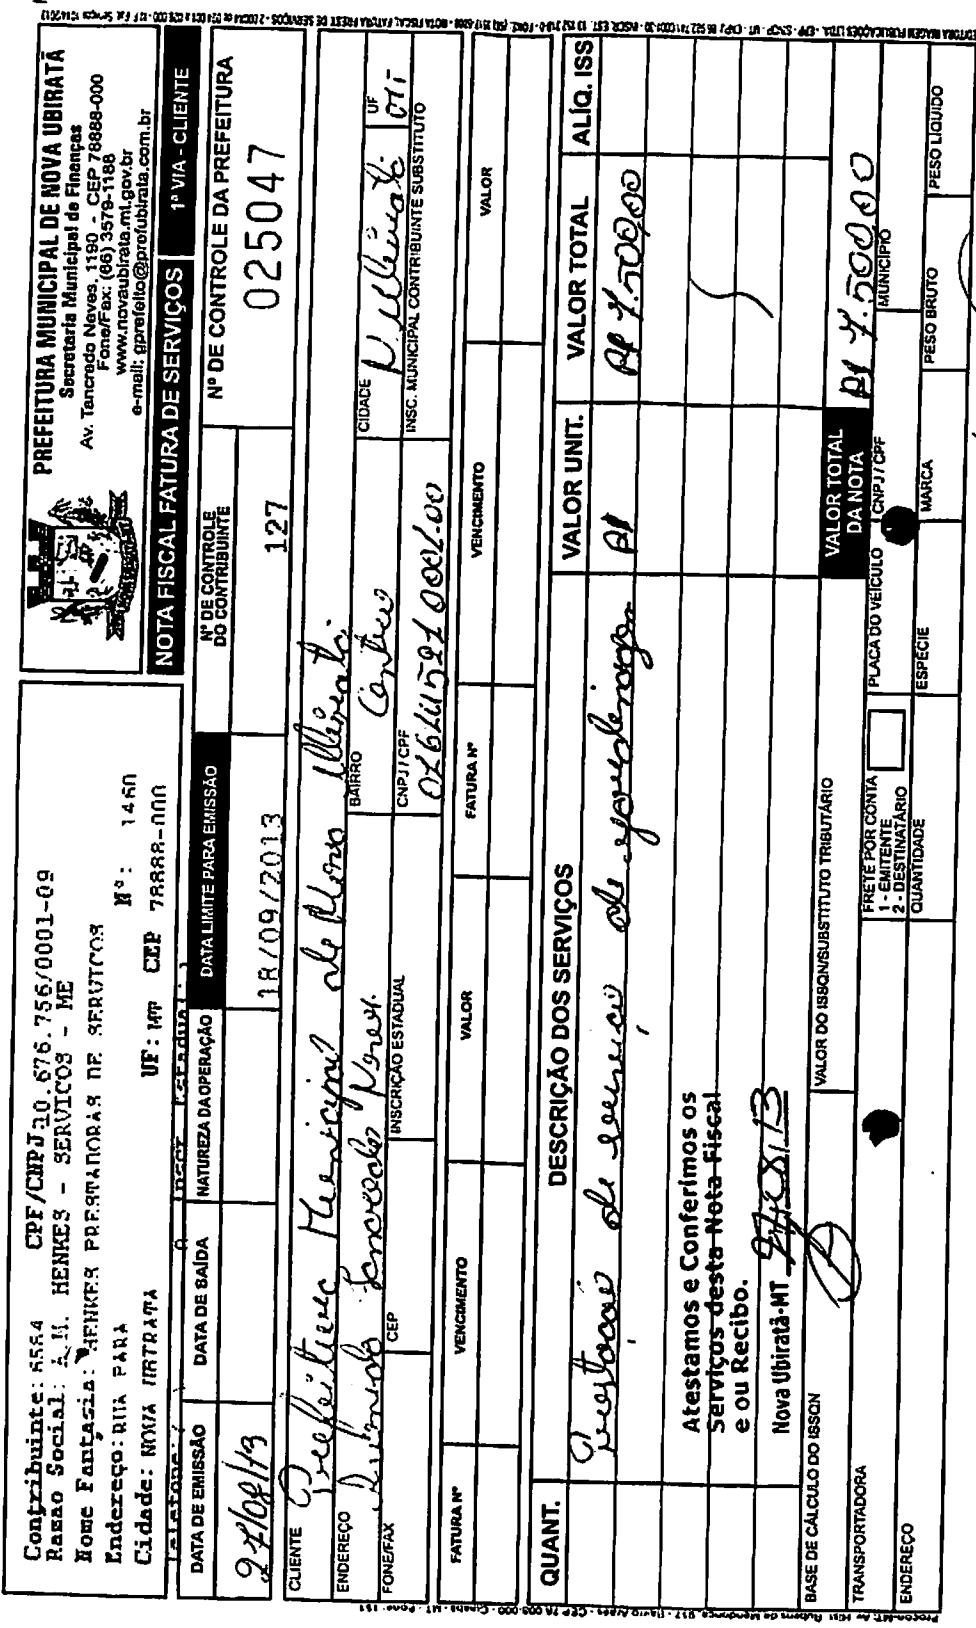 Contribuinte: 6564 CPF/CNPJ:10.676.756/0001-09
Razao Social: A.M. HENKES - SERVICOS - ME
Nome Fantasia: HENKES PRESTADORAS DE SERVICOS
Endereço: RUA PARA Nº: 1460
Cidade: NOVA UBIRATA UF: MT CEP 78888-000
PREFEITURA MUNICIPAL DE NOVA UBIRATÃ
Secretaria Municipal de Finanças
Av. Tancredo Neves, 1190 - CEP 78888-000
Fone/Fax: (66) 3579-1188
www.novaubirata.mt.gov.br
e-mail: gprefeito@profubirata.com.br
NOTA FISCAL FATURA DE SERVIÇOS 1ª VIA - CLIENTE
DATA DE EMISSÃO DATA DE SAÍDA NATUREZA DA OPERAÇÃO DATA LIMITE PARA EMISSÃO Nº DE CONTROLE DO CONTRIBUINTE Nº DE CONTROLE DA PREFEITURA
27/08/13 18/09/2013 127 025047
CLIENTE Prefeitura Municipal de Nova Ubiratã
ENDEREÇO Tancredo Neves BAIRRO Centro CIDADE N. Ubiratã UF MT
FONE/FAX CEP INSCRIÇÃO ESTADUAL CNPJ / CPF INSC. MUNICIPAL CONTRIBUINTE SUBSTITUTO
FATURA Nº VENCIMENTO VALOR FATURA Nº VENCIMENTO VALOR
QUANT. DESCRIÇÃO DOS SERVIÇOS VALOR UNIT. VALOR TOTAL ALÍQ. ISS
Prestação de serviço de R$ R$ 7.500,00
Atestamos e Conferimos os
Serviços desta Nota Fiscal
e ou Recibo.
Nova Ubiratã-MT 27/08/13
BASE DE CÁLCULO DO ISSQN VALOR DO ISSQN/SUBSTITUTO TRIBUTÁRIO VALOR TOTAL DA NOTA R$ 7.500,00
TRANSPORTADORA FRETE POR CONTA PLACA DO VEÍCULO CNPJ / CPF MUNICÍPIO
1 - EMITENTE
2 - DESTINATÁRIO
ENDEREÇO QUANTIDADE ESPÉCIE MARCA PESO BRUTO PESO LÍQUIDO